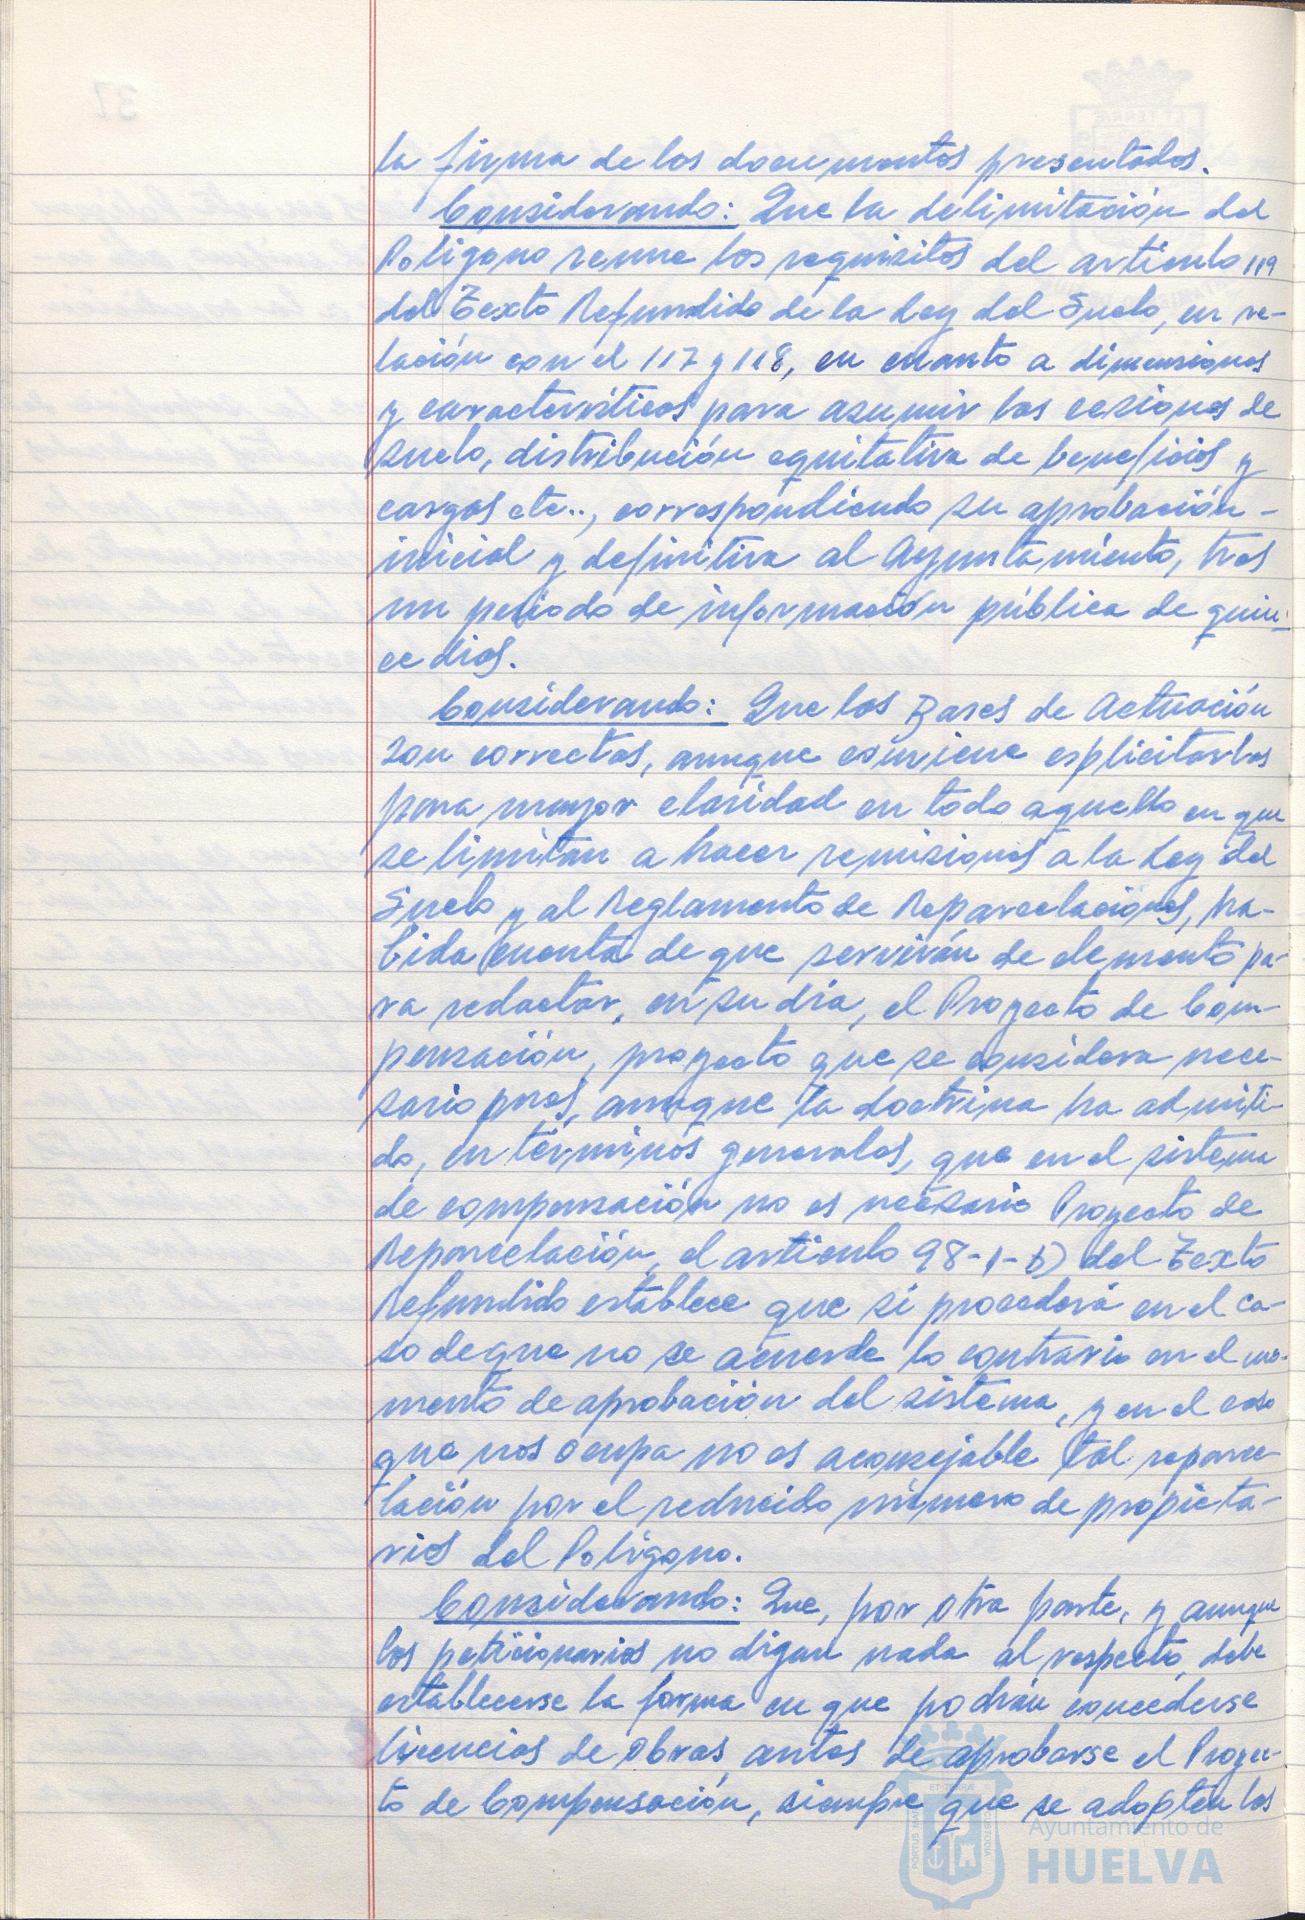 la firma de los documentos presentados.
Considerando: Que la delimitación del
Polígono reune los requisitos del artículo 119
del Texto Refundido de la Ley del Suelo, en re-
lación con el 117 y 118, en cuanto a dimensiones
y características para asumir las cesiones de
suelo, distribución equitativa de beneficios y
cargas etc.., correspondiendo su aprobación-
inicial y definitiva al Ayuntamiento, tras
un periodo de información pública de quin-
ce días.
Considerando: Que las Bases de Actuación
son correctas, aunque conviene esplicitarlas
para mayor claridad en todo aquello en que
se limitan a hacer remisiones a la Ley del
Suelo y al Reglamento de Reparcelaciones, ha-
bida cuenta de que servirán de elemento pa-
ra redactar, en su día, el Proyecto de Com-
pensación, proyecto que se considera nece-
sario pues, aunque la doctrina ha admiti-
do, en términos generales, que en el sistema
de compensación no es necesario Proyecto de
Reparcelación, el artículo 98-1-b) del Texto
Refundido establece que si procederá en el ca-
so de que no se acuerde lo contrario en el mo-
mento de aprobación del sistema, y en el caso
que nos ocupa no es aconsejable tal reparce-
lación por el reducido número de propieta-
rios del Polígono.
Considerando: Que, por otra parte, y aunque
los peticionarios no digan nada al respecto, debe
establecerse la forma en que podrán concederse
licencias de obras, antes de aprobarse el Proyec-
to de Compensación, siempre que se adopten las
Ayuntamiento de
HUELVA